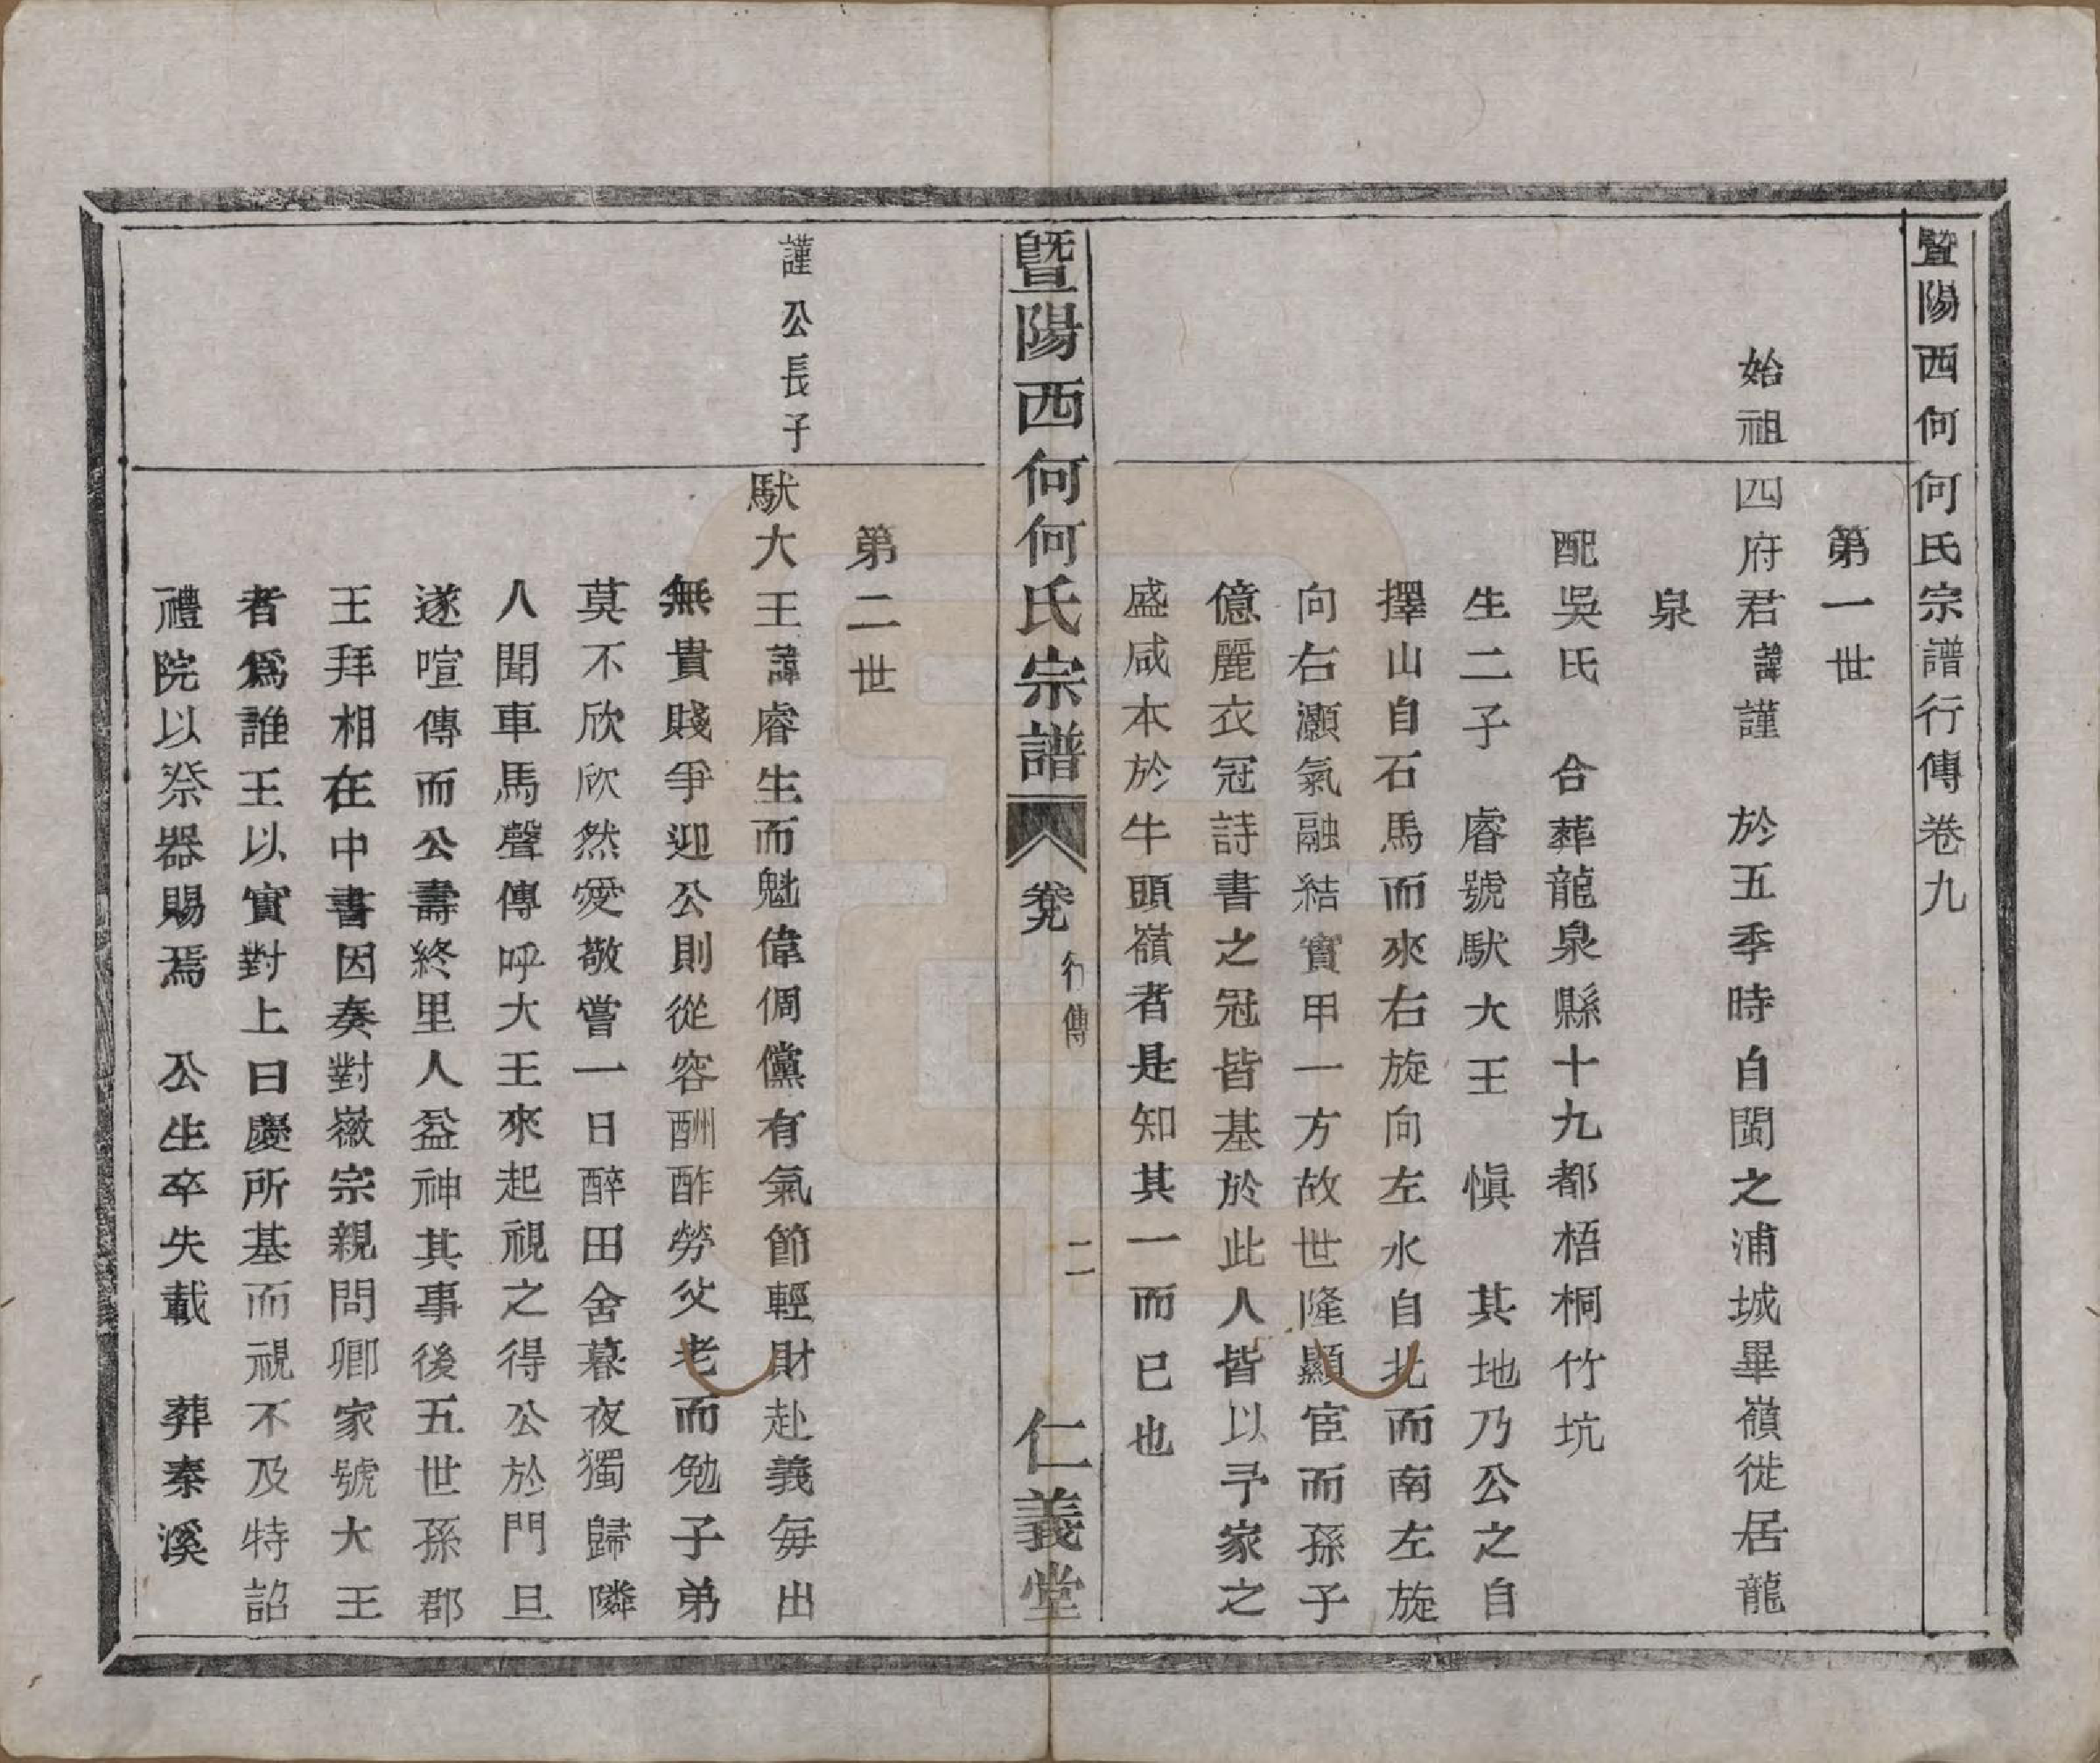 暨陽西何何氏宗譜行傳卷九
第一世
始祖四府君諱謹 於五季時自閩之浦城畢嶺徙居龍
泉
配吳氏 合葬龍泉縣十九都梧桐竹坑
生二子 睿號馱大王 愼 其地乃公之自
擇山自石馬而來右旋向左水自北而南左旋
向右灝氣融結實甲一方故世隆顯宦而孫子
億麗衣冠詩書之冠皆基於此人皆以予家之
盛咸本於牛頭嶺者是知其一而已也
暨陽西何何氏宗譜 卷九 行傳 二 仁義堂
第二世
謹公長子 馱大王諱睿生而魁偉倜儻有氣節輕財赴義每出
無貴賤爭迎公則從容酬酢勞父老而勉子弟
莫不欣欣然愛敬嘗一日醉田舍暮夜獨歸隣
人聞車馬聲傳呼大王來起視之得公於門旦
遂喧傳而公壽終里人益神其事後五世孫郡
王拜相在中書因奏對徽宗親問卿家號大王
者爲誰王以實對上曰慶所基而視不及特詔
禮院以祭器賜焉 公生卒失載 葬秦溪